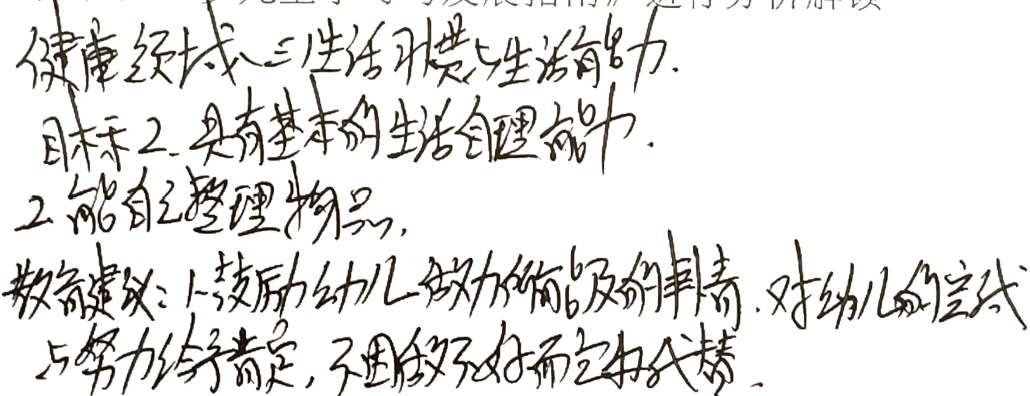 发展指南》进行分析解读
健康领域(三)生活习惯与生活能力.
目标2.具有基本的生活自理能力.
2.能自己整理物品.
教育建议:1.鼓励幼儿做力所能及的事情.对幼儿的尝试
与努力给予肯定,不因做不好而包办代替.